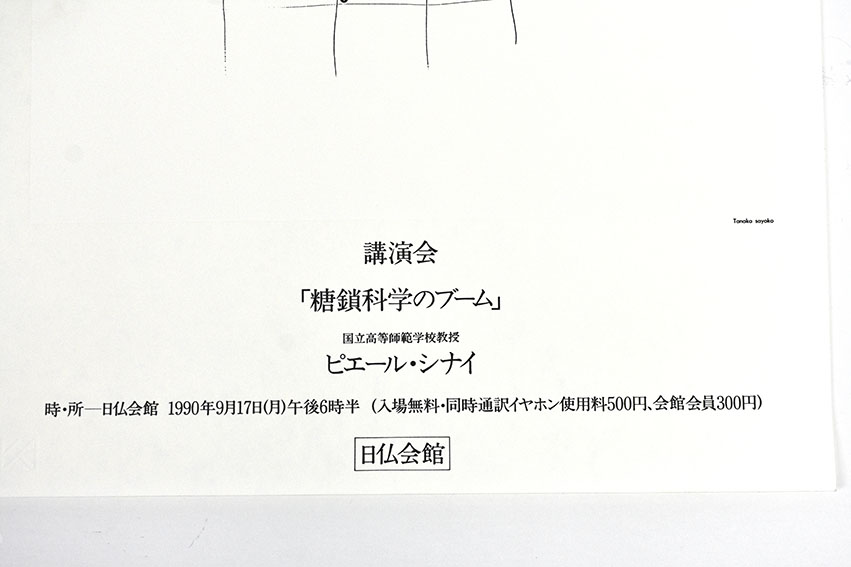 Tanaka sayoko
講演会
「糖鎖科学のブーム」
国立高等師範学校教授
ピエール・シナイ
時・所―日仏会館 1990年9月17日(月)午後6時半 (入場無料・同時通訳イヤホン使用料500円、会館会員300円)
日仏会館